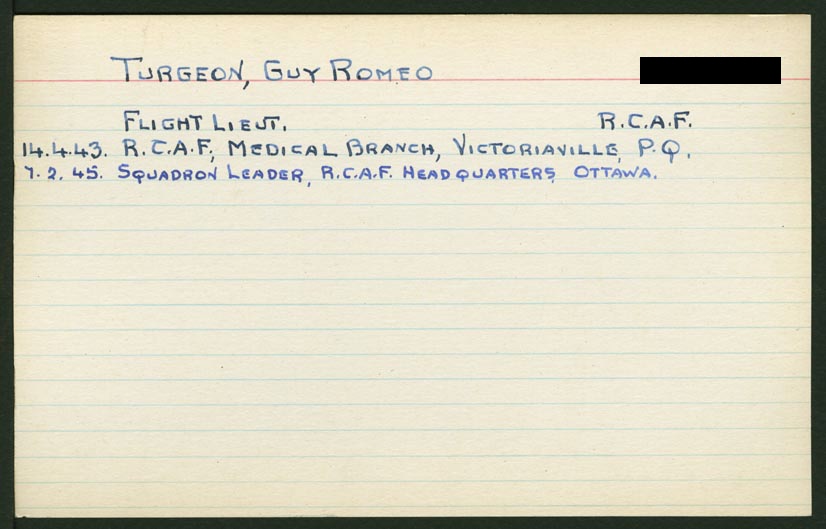 TURGEON, GUY ROMEO
FLIGHT LIEUT. R.C.A.F.
14.4.43. R.C.A.F, MEDICAL BRANCH, VICTORIAVILLE, P.Q.
7.2.45. SQUADRON LEADER, R.C.A.F. HEADQUARTERS, OTTAWA.